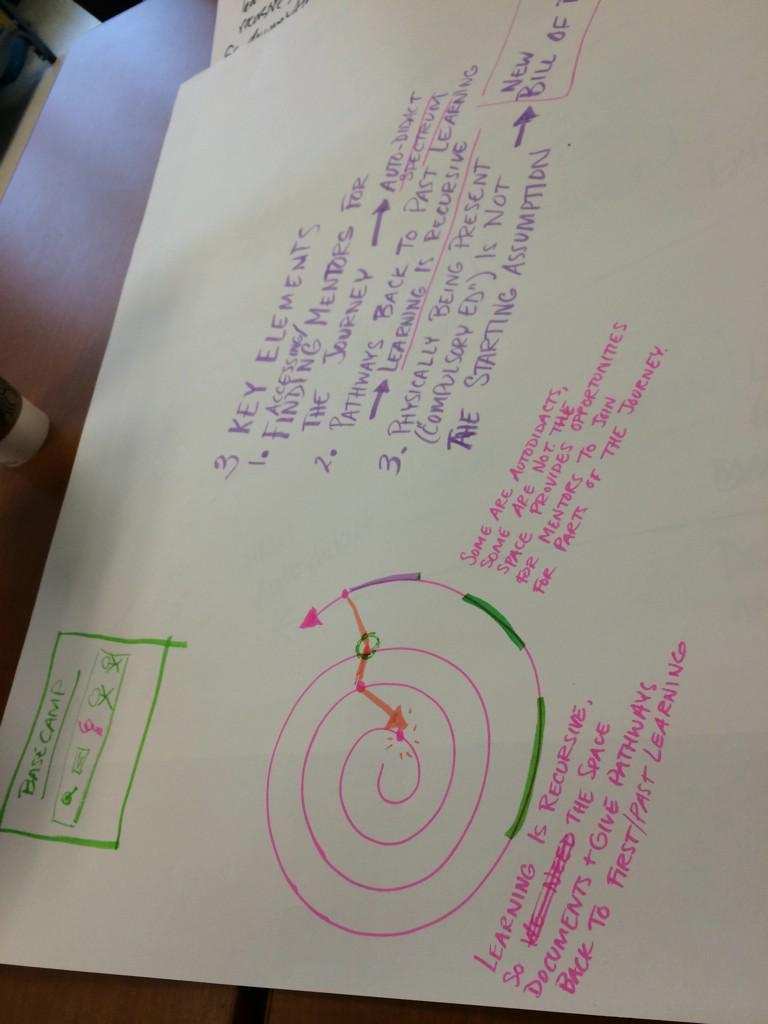 3 KEY ELEMENTS
1. ACCESSING/
FINDING MENTORS FOR
THE JOURNEY → AUTO-DIDACT
SPECTRUM
2. PATHWAYS BACK TO PAST LEARNING
→ LEARNING IS RECURSIVE
3. PHYSICALLY BEING PRESENT
("COMPULSORY ED") IS NOT
THE STARTING ASSUMPTION → NEW
BILL OF
SOME ARE AUTODIDACTS,
SOME ARE NOT THE
SPACE PROVIDES OPPORTUNITIES
FOR MENTORS TO JOIN
FOR PARTS OF THE JOURNEY.
BASECAMP
LEARNING IS RECURSIVE,
SO WE NEED THE SPACE
DOCUMENTS + GIVE PATHWAYS
BACK TO FIRST/PAST LEARNING